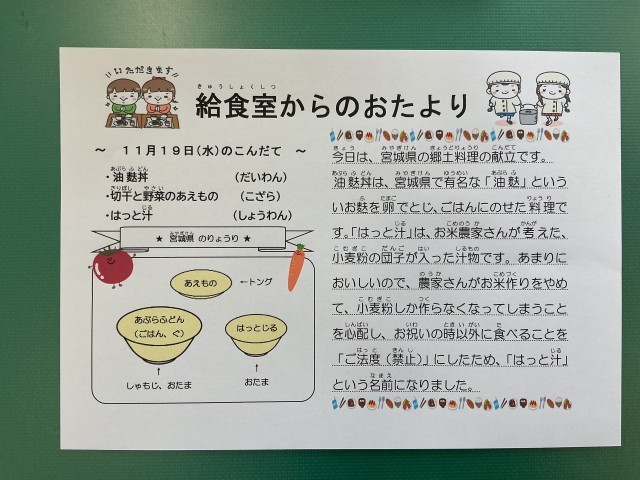 いただきます
給食室からのおたより
～ 11月19日(水)のこんだて ～
・油麩丼 (だいわん)
・切干と野菜のあえもの (こざら)
・はっと汁 (しょうわん)
★ 宮城県 のりょうり ★
あえもの ←トング
あぶらふどん
(ごはん、ぐ)
はっとじる
↑
しゃもじ、おたま
↑
おたま
今日は、宮城県の郷土料理の献立です。
油麩丼は、宮城県で有名な「油麩」という
いお麩を卵でとじ、ごはんにのせた料理で
す。「はっと汁」は、お米農家さんが考えた、
小麦粉の団子が入った汁物です。あまりに
おいしいので、農家さんがお米作りをやめ
て、小麦粉しか作らなくなってしまうこと
を心配し、お祝いの時以外に食べることを
「ご法度（禁止）」にしたため、「はっと汁」
という名前になりました。